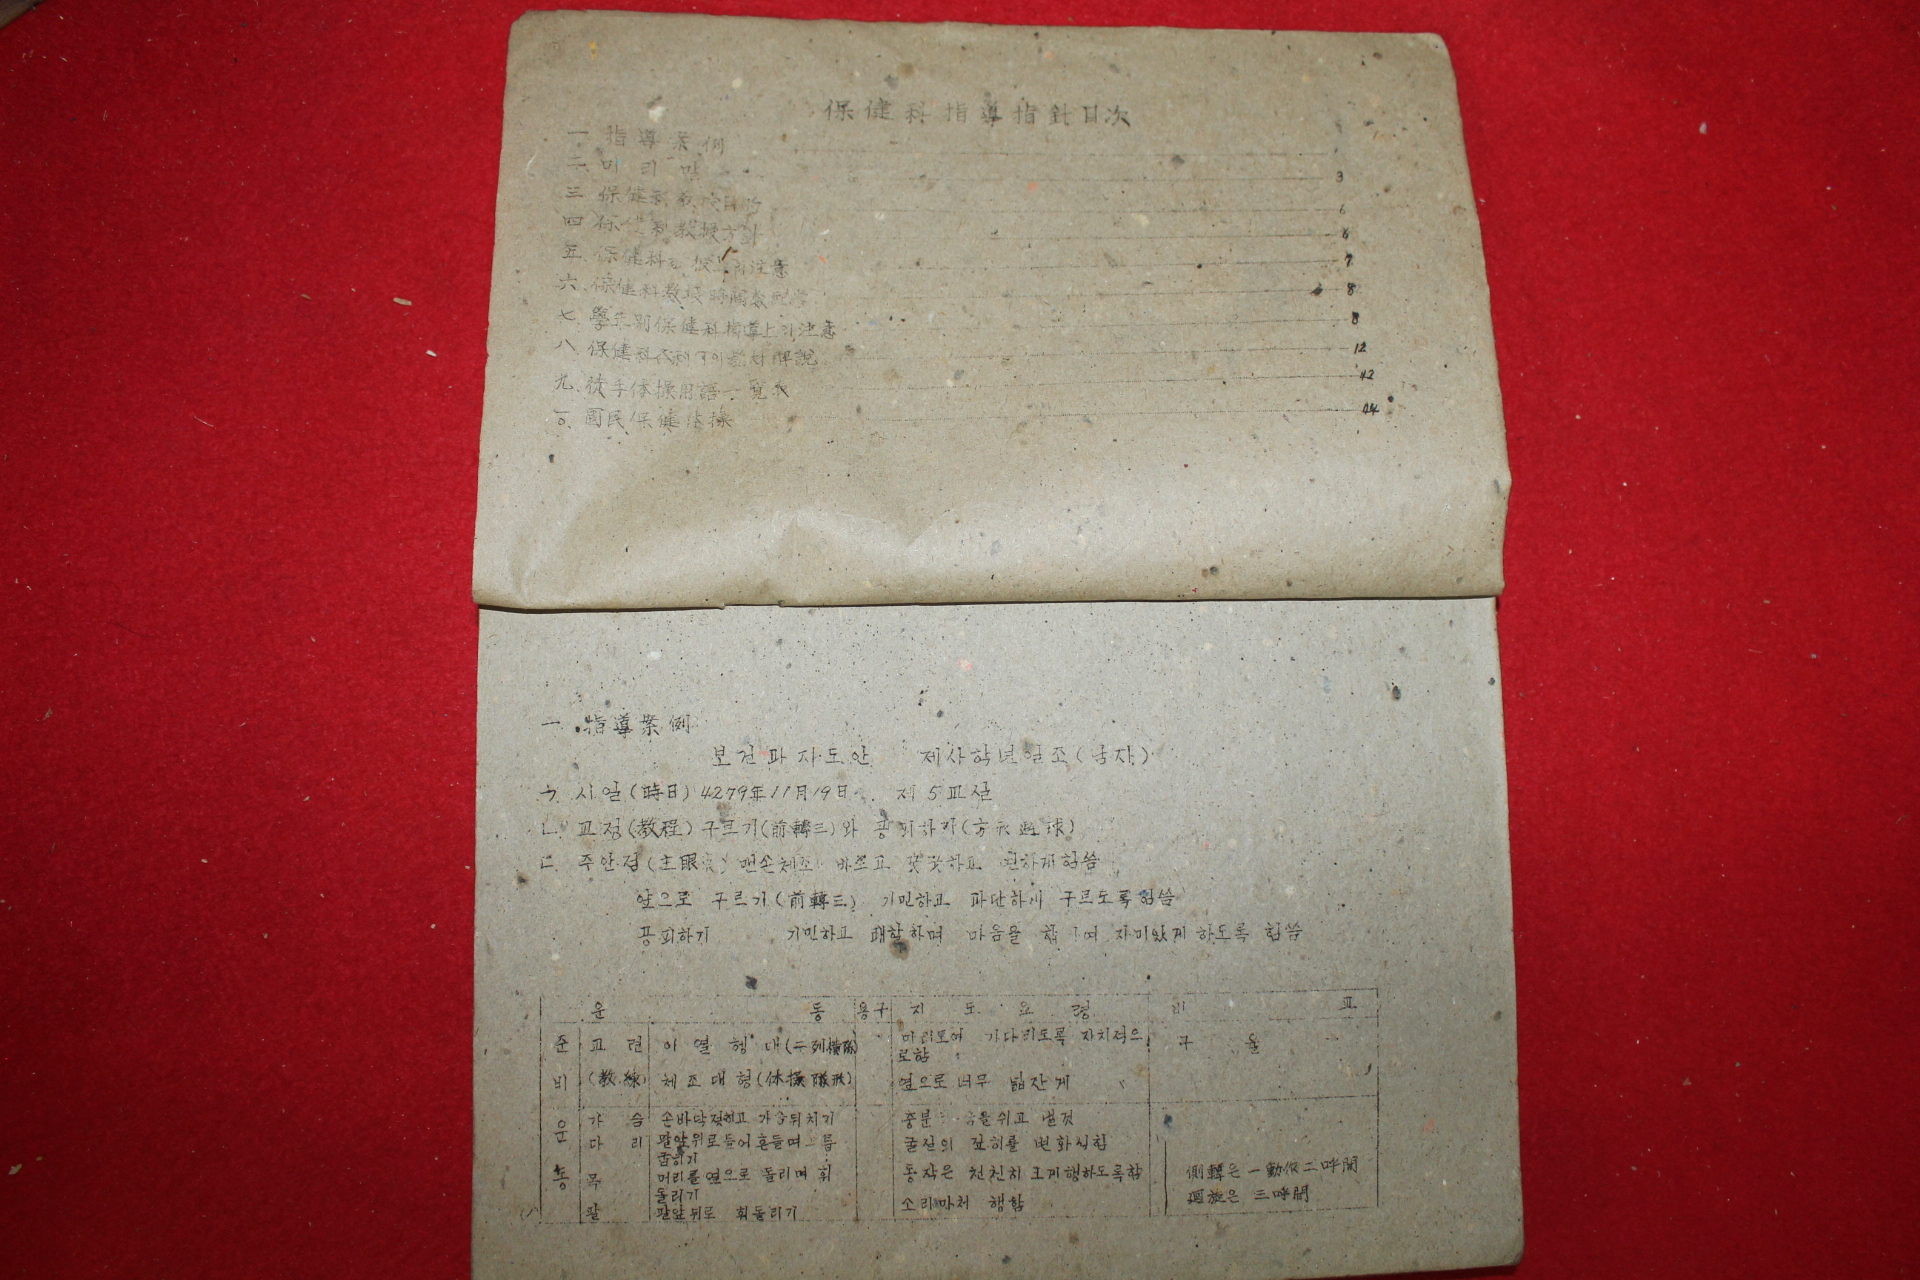 保健科指導指針目次
一 指導案例 1
二 머리말 3
三 保健科教授目的 6
四 保健科教授方針 6
五 保健科教授上의注意 7
六 保健科教授時間數配當 8
七 學年別保健科指導上의注意 8
八 保健科 解說 12
九 徒手体操用語一覽表 42
국民保健体操 44
一. 指導案例
보건과지도안 제사학년일조(남자)
ㄱ. 시일(時日) 4279年11月19日 제5교실
ㄴ. 교정(教程) 구르기(前轉三)와 공피하기(方形避球)
ㄷ. 주안점(主眼点) 맨손체조 바르고 꿋꿋하고 힘씀
앞으로 구르기(前轉三) 기민하고 과단하게 구르도록힘씀
공피하기 기민하고 쾌활하며 마음을 합하여 자미있게 하도록 힘씀
운 동 용구 지 도 요 령 비 고
준 교 련 이 열 횡 대(二列橫隊) 미리모여 기다리도록 자치적으
로함 구 율
비 (教練) 체조대형(体操隊形) 옆으로 너무 넓잔게 〃
운 가 슴 손바닥젖히고 가슴뒤치기 충분 숨을쉬고 낼것
다 리 팔앞위로들어흔들며 무릅 굴신의 변화식힘
굽히기
동 목 머리를옆으로 돌리며 휘 동작은 천천히 크게행하도록함 側轉은 一動作二呼間
돌리기 廻旋은 三呼間
팔 팔앞뒤로 휘돌리기 소리마처 행함